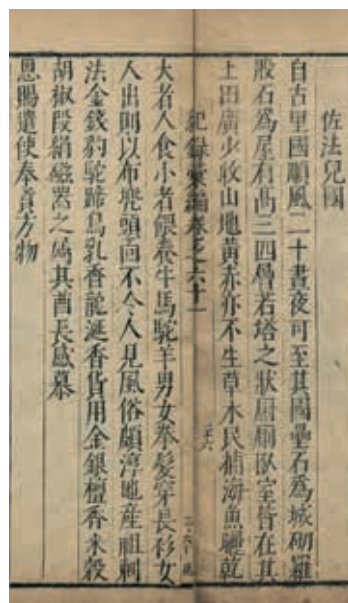 佐法兒國
自古里國順風二十晝夜可至其國壘石爲城砌羅
股石爲屋有高三四層若塔之狀厨厠臥室皆在其
上田廣少收山地黃赤亦不生草木民捕海魚曬乾
紀錄彙編卷之六十一
大者人食小者餵養牛馬駝羊男女拳髮穿長衫女
人出則以布兠頭面不令人見風俗頗淳地産祖剌
法金錢豹駝蹄鳥乳香龍涎香貨用金銀檀香米穀
胡椒段絹磁器之屬其酋長感慕
恩賜遣使奉貢方物